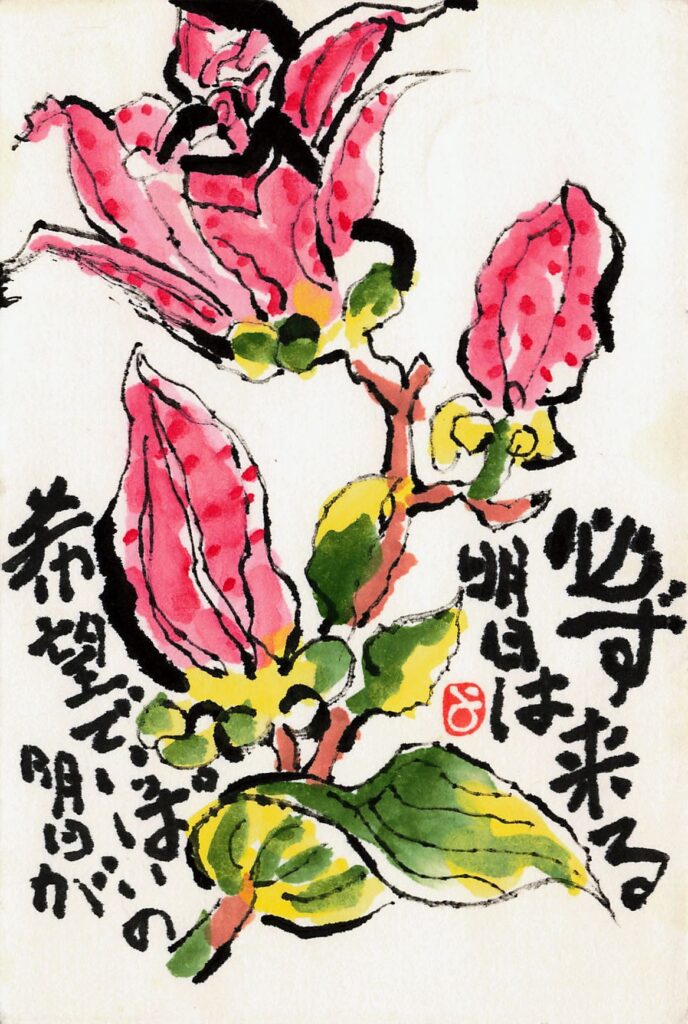 必ず来る
明日は
希望でいっぱいの
明日が